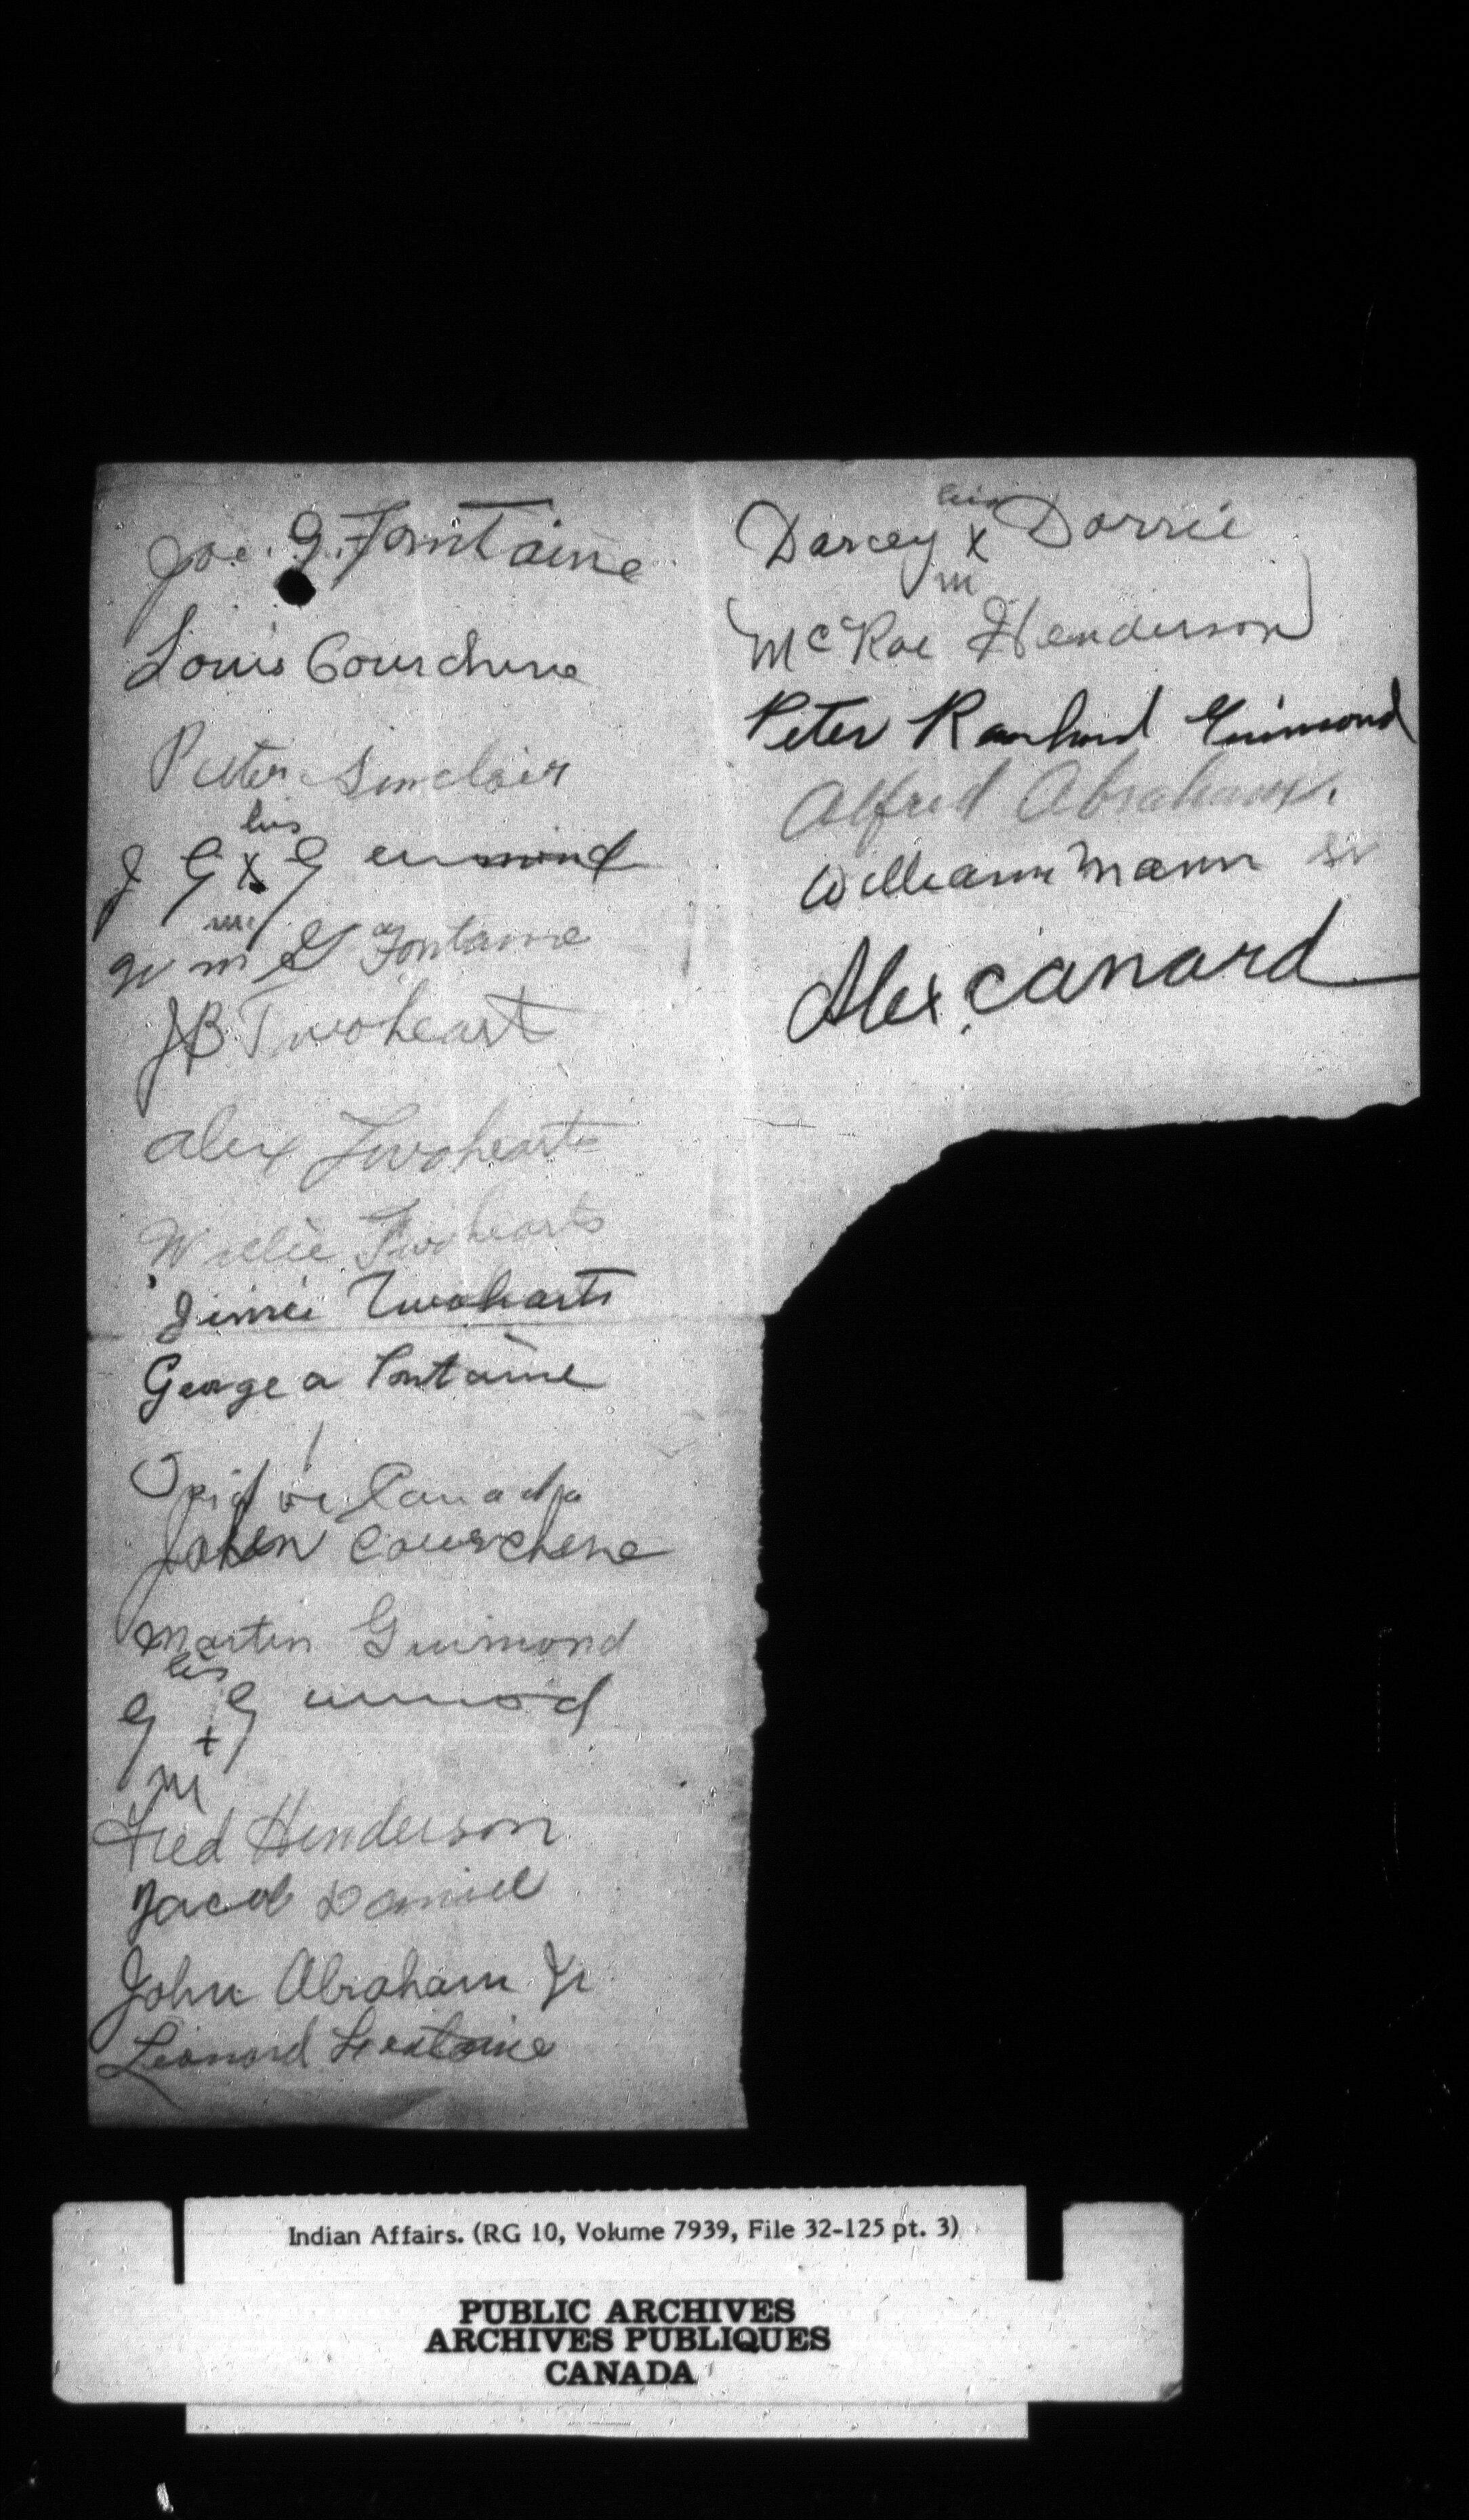 Joe. G. Fontaine
Louis Courchene
Peter Sinclair
his
J G x G uimond
m
Wm G Fontaine
JB Twoheart
Alex Twohearts
Willie Twohearts
Jimie Twohearts
George a Fontaine
Canada
John Courchene
Martin Guimond
his
G + G uimod
M
Fred Henderson
Jacob Daniel
John Abraham Jr
Leonard Fontaine
his
Darcey x Dorrie
m
McRae Henderson
Peter Guimond
Alfred Abraham.
William Mann sr
Alex. canard
Indian Affairs. (RG 10, Volume 7939, File 32-125 pt. 3)
PUBLIC ARCHIVES
ARCHIVES PUBLIQUES
CANADA